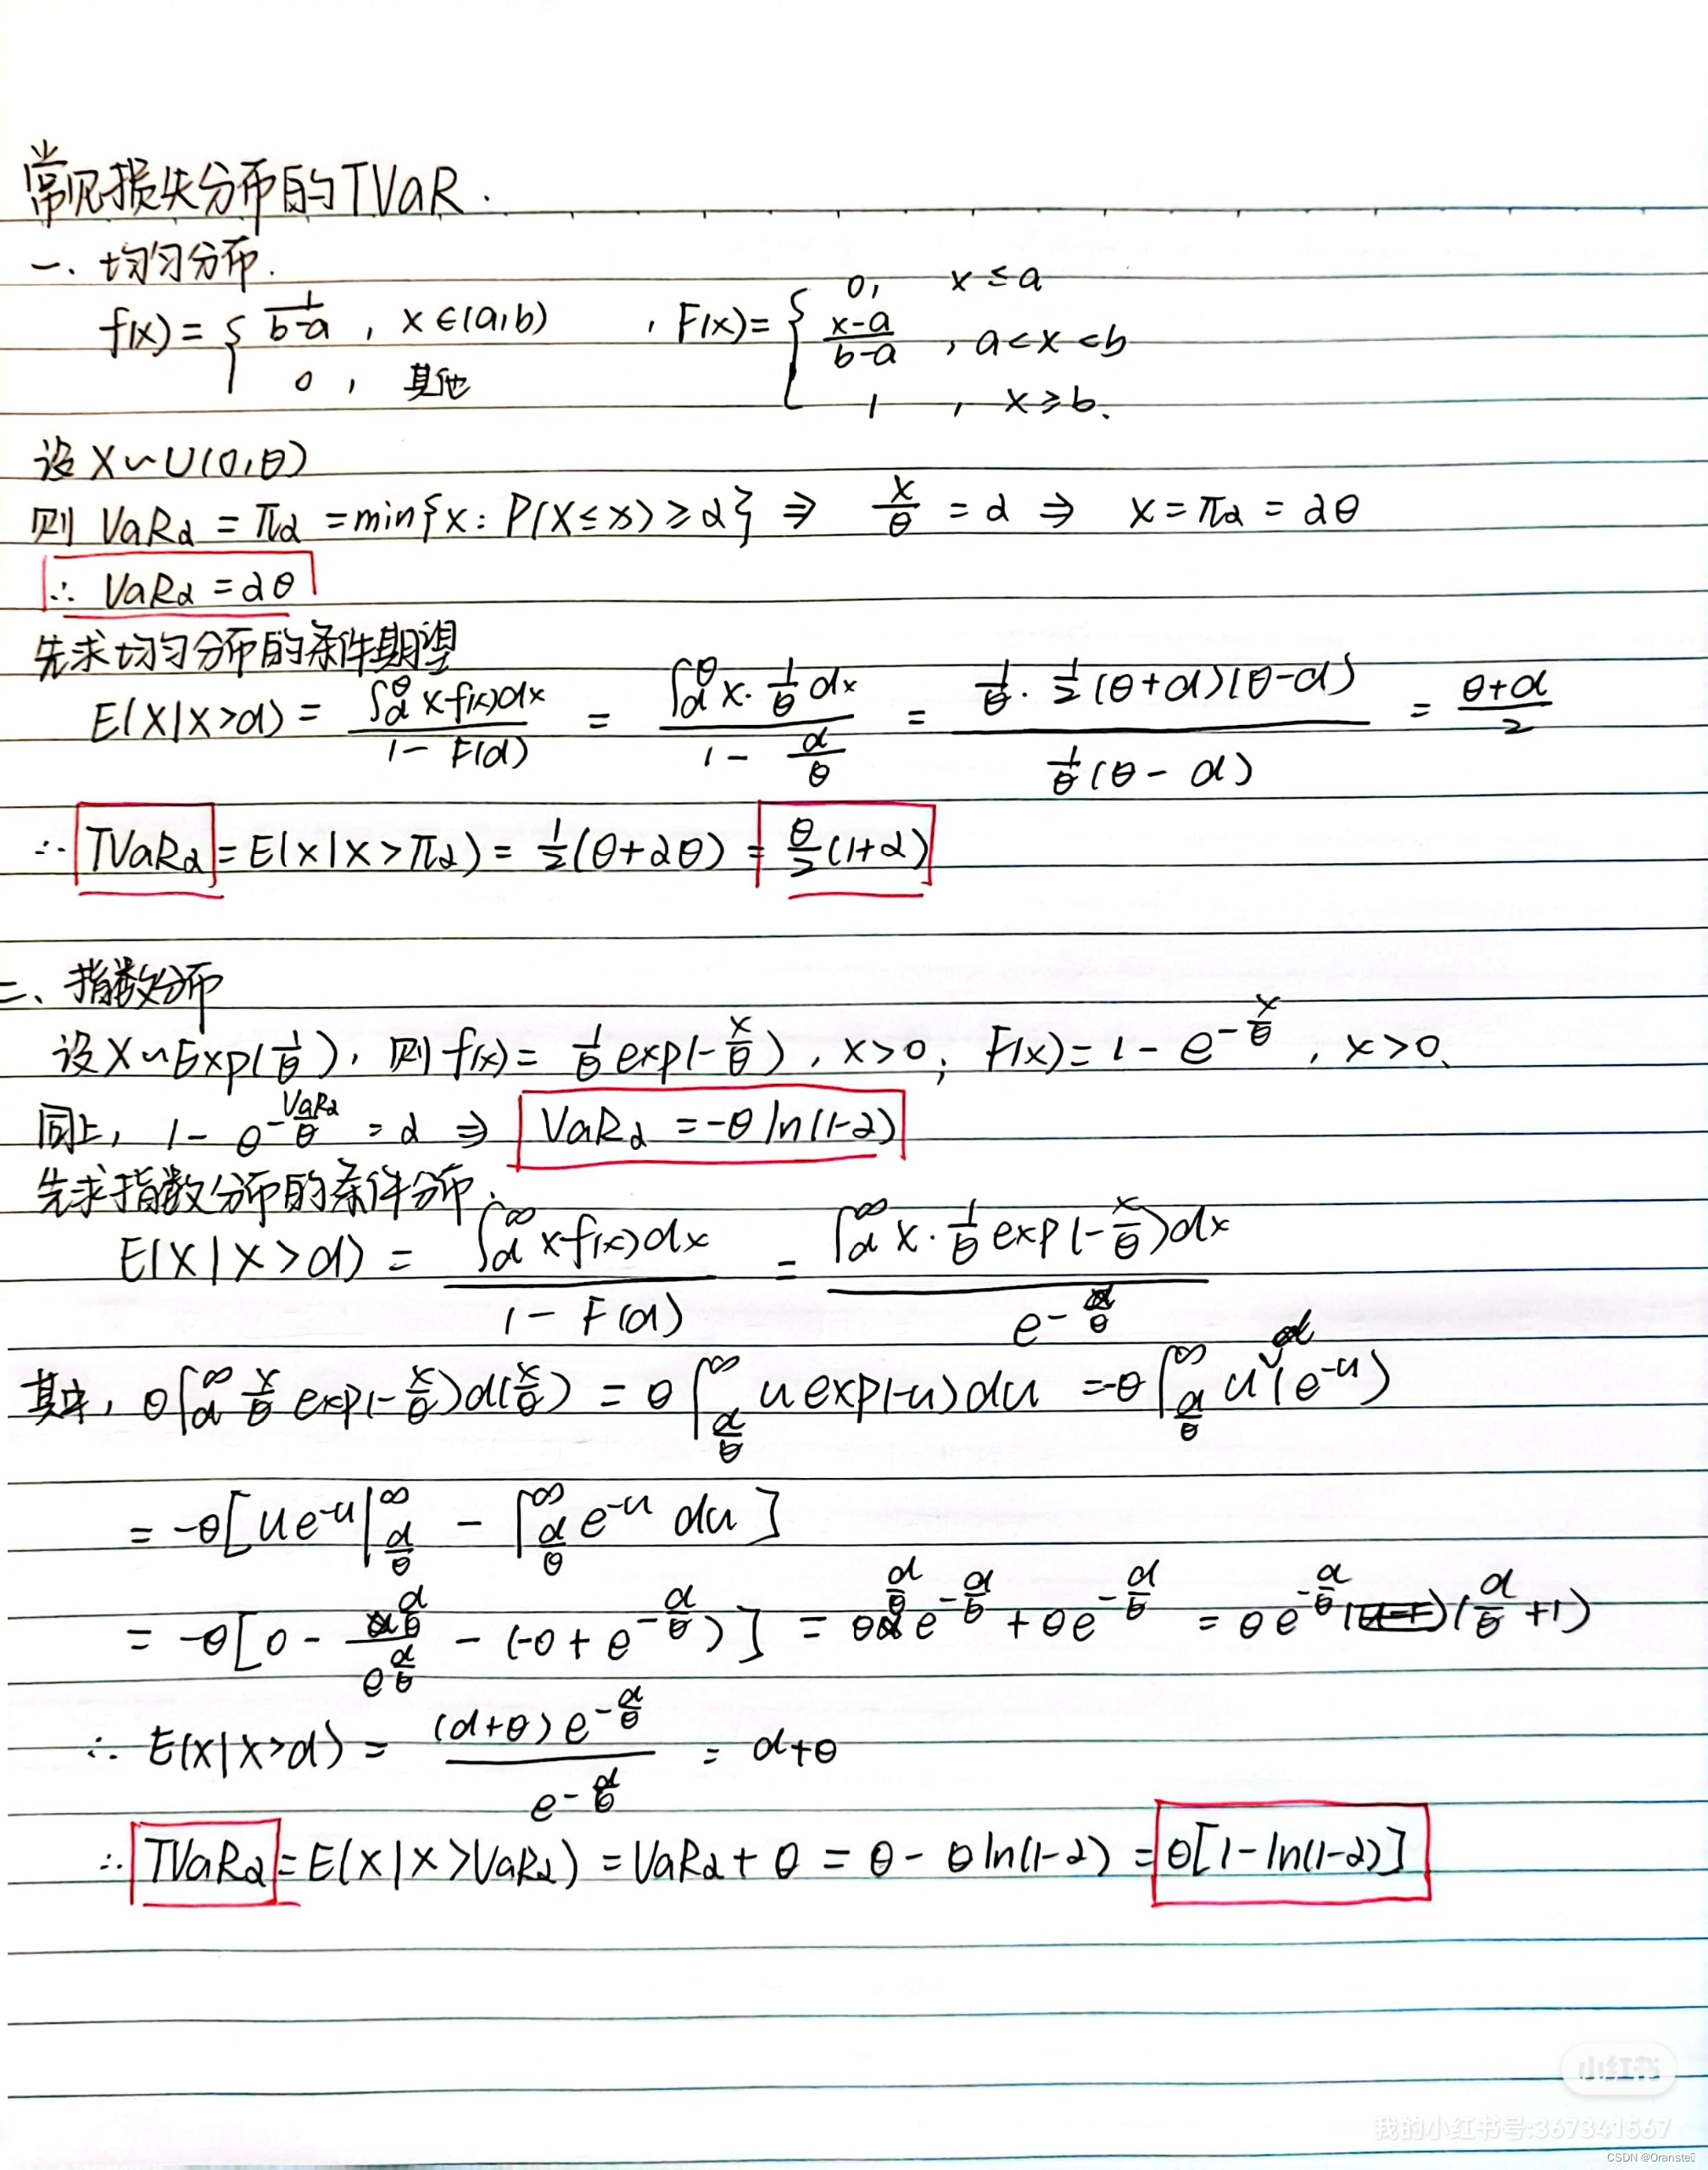 常见损失分布的TVaR.
一、均匀分布.
f(x) = { 1/(b-a) , x∈(a,b) ; 0 , 其他 , F(x) = { 0, x ≤ a ; (x-a)/(b-a) , a<x<b ; 1 , x≥b.
设 X~U(0,θ)
则 VaRα = πα = min{x: P(X≤x) ≥ α} ⇒ x/θ = α ⇒ x = πα = αθ
∴ VaRα = αθ
先求均匀分布的条件期望
E(X|X>d) = ∫_d^θ x·f(x)dx / (1-F(d)) = ∫_d^θ x·(1/θ)dx / (1-d/θ) = (1/θ)·(1/2)(θ+d)(θ-d) / ((1/θ)(θ-d)) = (θ+d)/2
∴ TVaRα = E(X|X>πα) = 1/2(θ+αθ) = θ/2(1+α)
二、指数分布
设 X~Exp(1/θ), 则 f(x) = 1/θ exp(-x/θ), x>0; F(x) = 1 - e^(-x/θ), x>0.
同上, 1 - e^(-VaRα/θ) = α ⇒ VaRα = -θ ln(1-α)
先求指数分布的条件分布.
E(X|X>d) = ∫_d^∞ x f(x)dx / (1-F(d)) = ∫_d^∞ x·(1/θ) exp(-x/θ)dx / e^(-d/θ)
其中, θ∫_d^∞ (x/θ) exp(-x/θ)d(x/θ) = θ∫_{d/θ}^∞ u exp(-u)du = -θ∫_{d/θ}^∞ u d(e^-u)
= -θ[ue^-u |_{d/θ}^∞ - ∫_{d/θ}^∞ e^-u du]
= -θ[0 - (d/θ)/e^(d/θ) - (-0 + e^(-d/θ))] = θ(d/θ)e^(-d/θ) + θe^(-d/θ) = θe^(-d/θ)(d/θ+1)
∴ E(X|X>d) = (d+θ)e^(-d/θ) / e^(-d/θ) = d+θ
∴ TVaRα = E(X|X>VaRα) = VaRα + θ = θ - θ ln(1-α) = θ[1-ln(1-α)]
小红书
我的小红书号:367341567